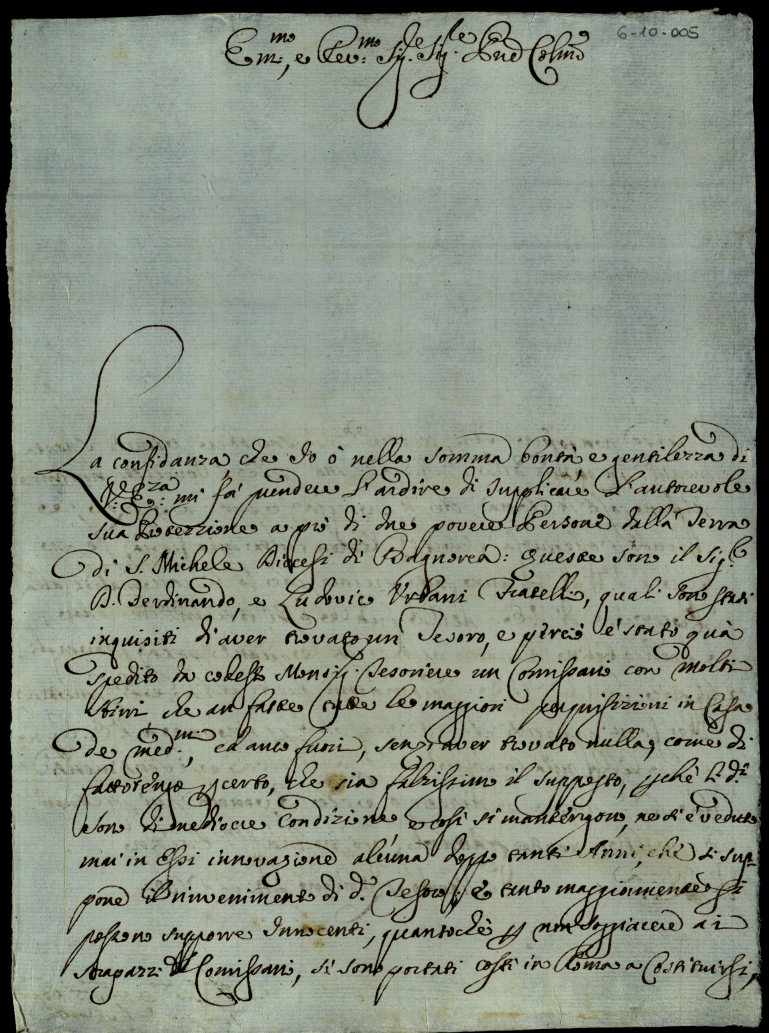 6-10-005
Em.mo, e Rev.mo Sig.re Sig.re Pne Colmo
La confidanza che Io ò nella somma bontà e gentilezza di
V.ra Em.za mi fà prendere l'ardire di supplicare l'autorevole
sua Protezzione a prò di due povere Persone dalla Terra
di S. Michele Diocesi di Bagnorea: queste son il Sig.r
D. Ferdinando, e Ludovico Urbani Fratelli, quali sono stati
inquisiti di aver trovato un Tesoro, e perciò è stato quà
spedito da codesto Mons.g. Tesoriere un Comissario con molti
sbirri, che an fatte tutte le maggiori perquisizioni in Casa
de med.mi, ed anco fuori, senz'aver trovato nulla, come di
fatto certo, che sia falzissimo il supposto, p̱chè li d.i
son di mediocre condizione e così si mantengon, ne si è veduta
mai in Essi innovazione alcuna doppo tanti Anni, che si sup=
pone il rinvenimento di d.o Tesoro; e tanto maggiormente si
possono supporre Innocenti, quantochè p̱ non soggiacere a i
strapazzi del Comissario, si sono portati costì in Roma a Costituirsi,